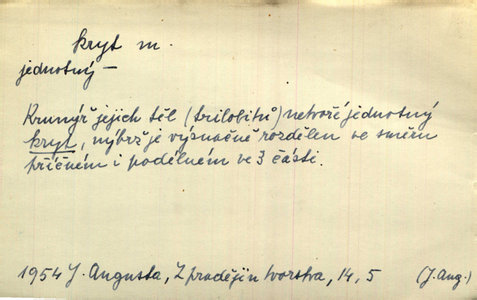 kryt m.
jednotný –
Krunýř jejich těl (trilobitů) netvoří jednotný
kryt, nýbrž je význačně rozdělen ve směru
příčném i podélném ve 3 části.
1954 J. Augusta, Z pradějin tvorstva, 14, 5 (J. Aug.)